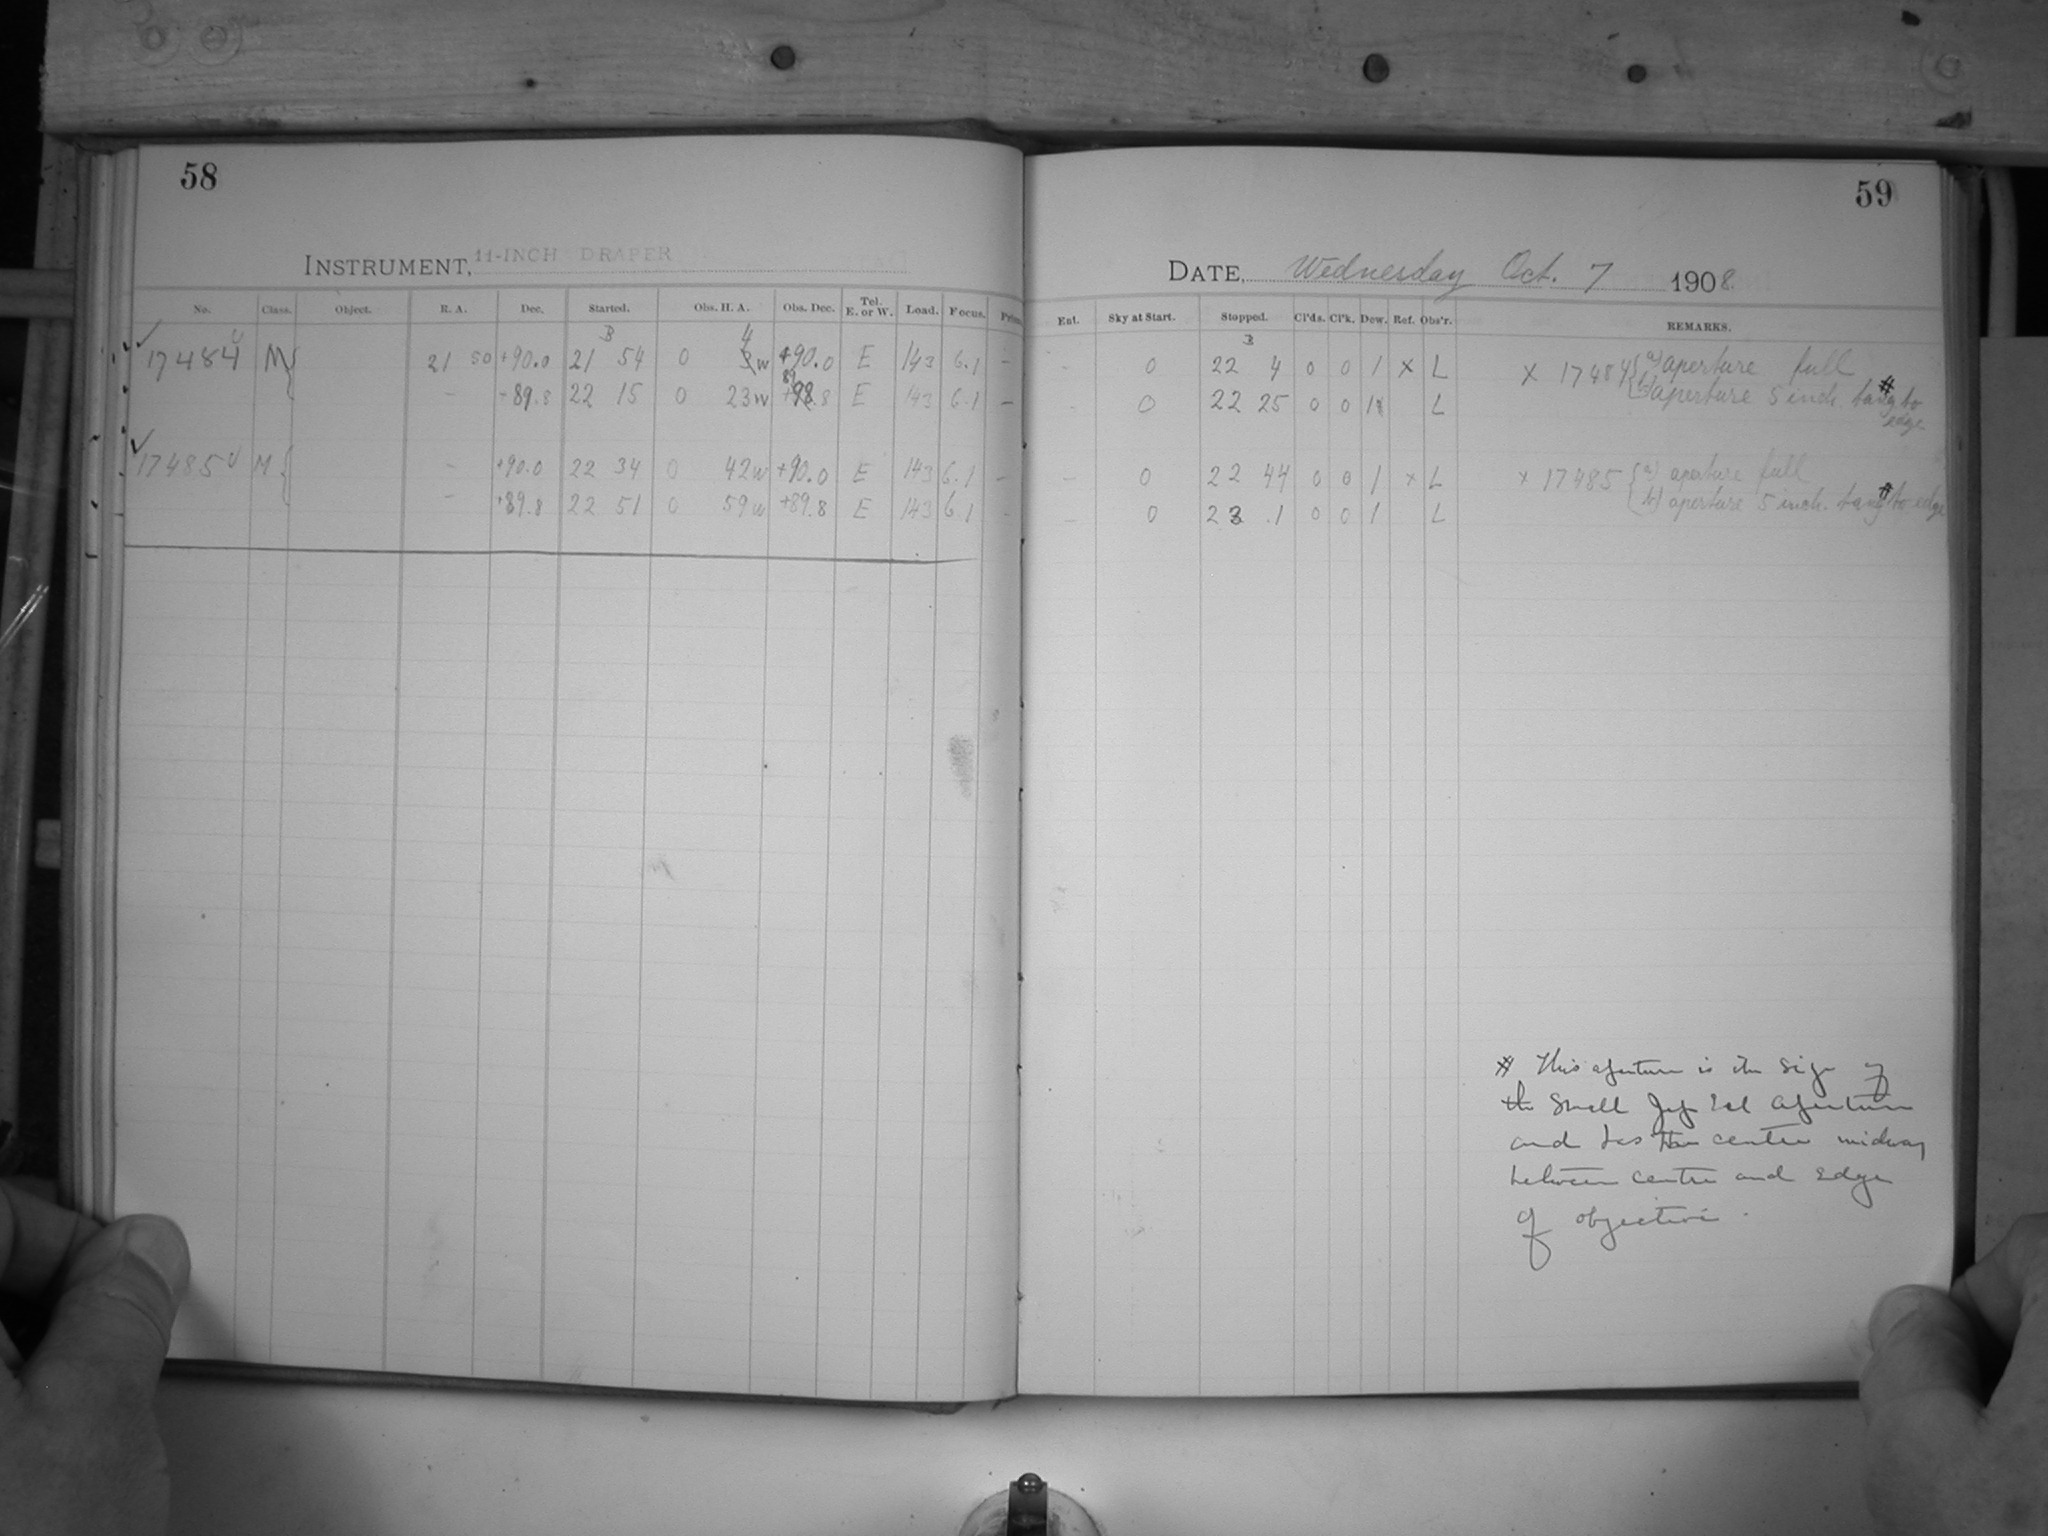 58
INSTRUMENT, 11-INCH DRAPER
No. Class. Object. R. A. Dec. Started. Obs. H. A. Obs. Dec. Tel. E. or W. Load. Focus.
17484 M 21 50 +90.0 21 54 0 W +90.0 E 143 6.1 –
– 89.8 22 15 0 23 W 89.8 E 143 6.1 –
17485 M – +90.0 22 34 0 42 W +90.0 E 143 6.1 –
– +89.8 22 51 0 59 W +89.8 E 143 6.1
59
DATE, Wednesday Oct. 7 1908
Ent. Sky at Start. Stopped. Cl'ds. Cl'k. Dew. Ref. Obs'r. REMARKS.
0 22 4 0 0 1 x L x 17484 { a) aperture full
0 22 25 0 0 1 L b) aperture 5 inch. tang # to edge
0 22 44 0 0 1 x L x 17485 { a) aperture full
0 23 1 0 0 1 L b) aperture 5 inch. tang # to edge
# This aperture is the size of
the small aperture
and has centre midway
between centre and edge
of objective.